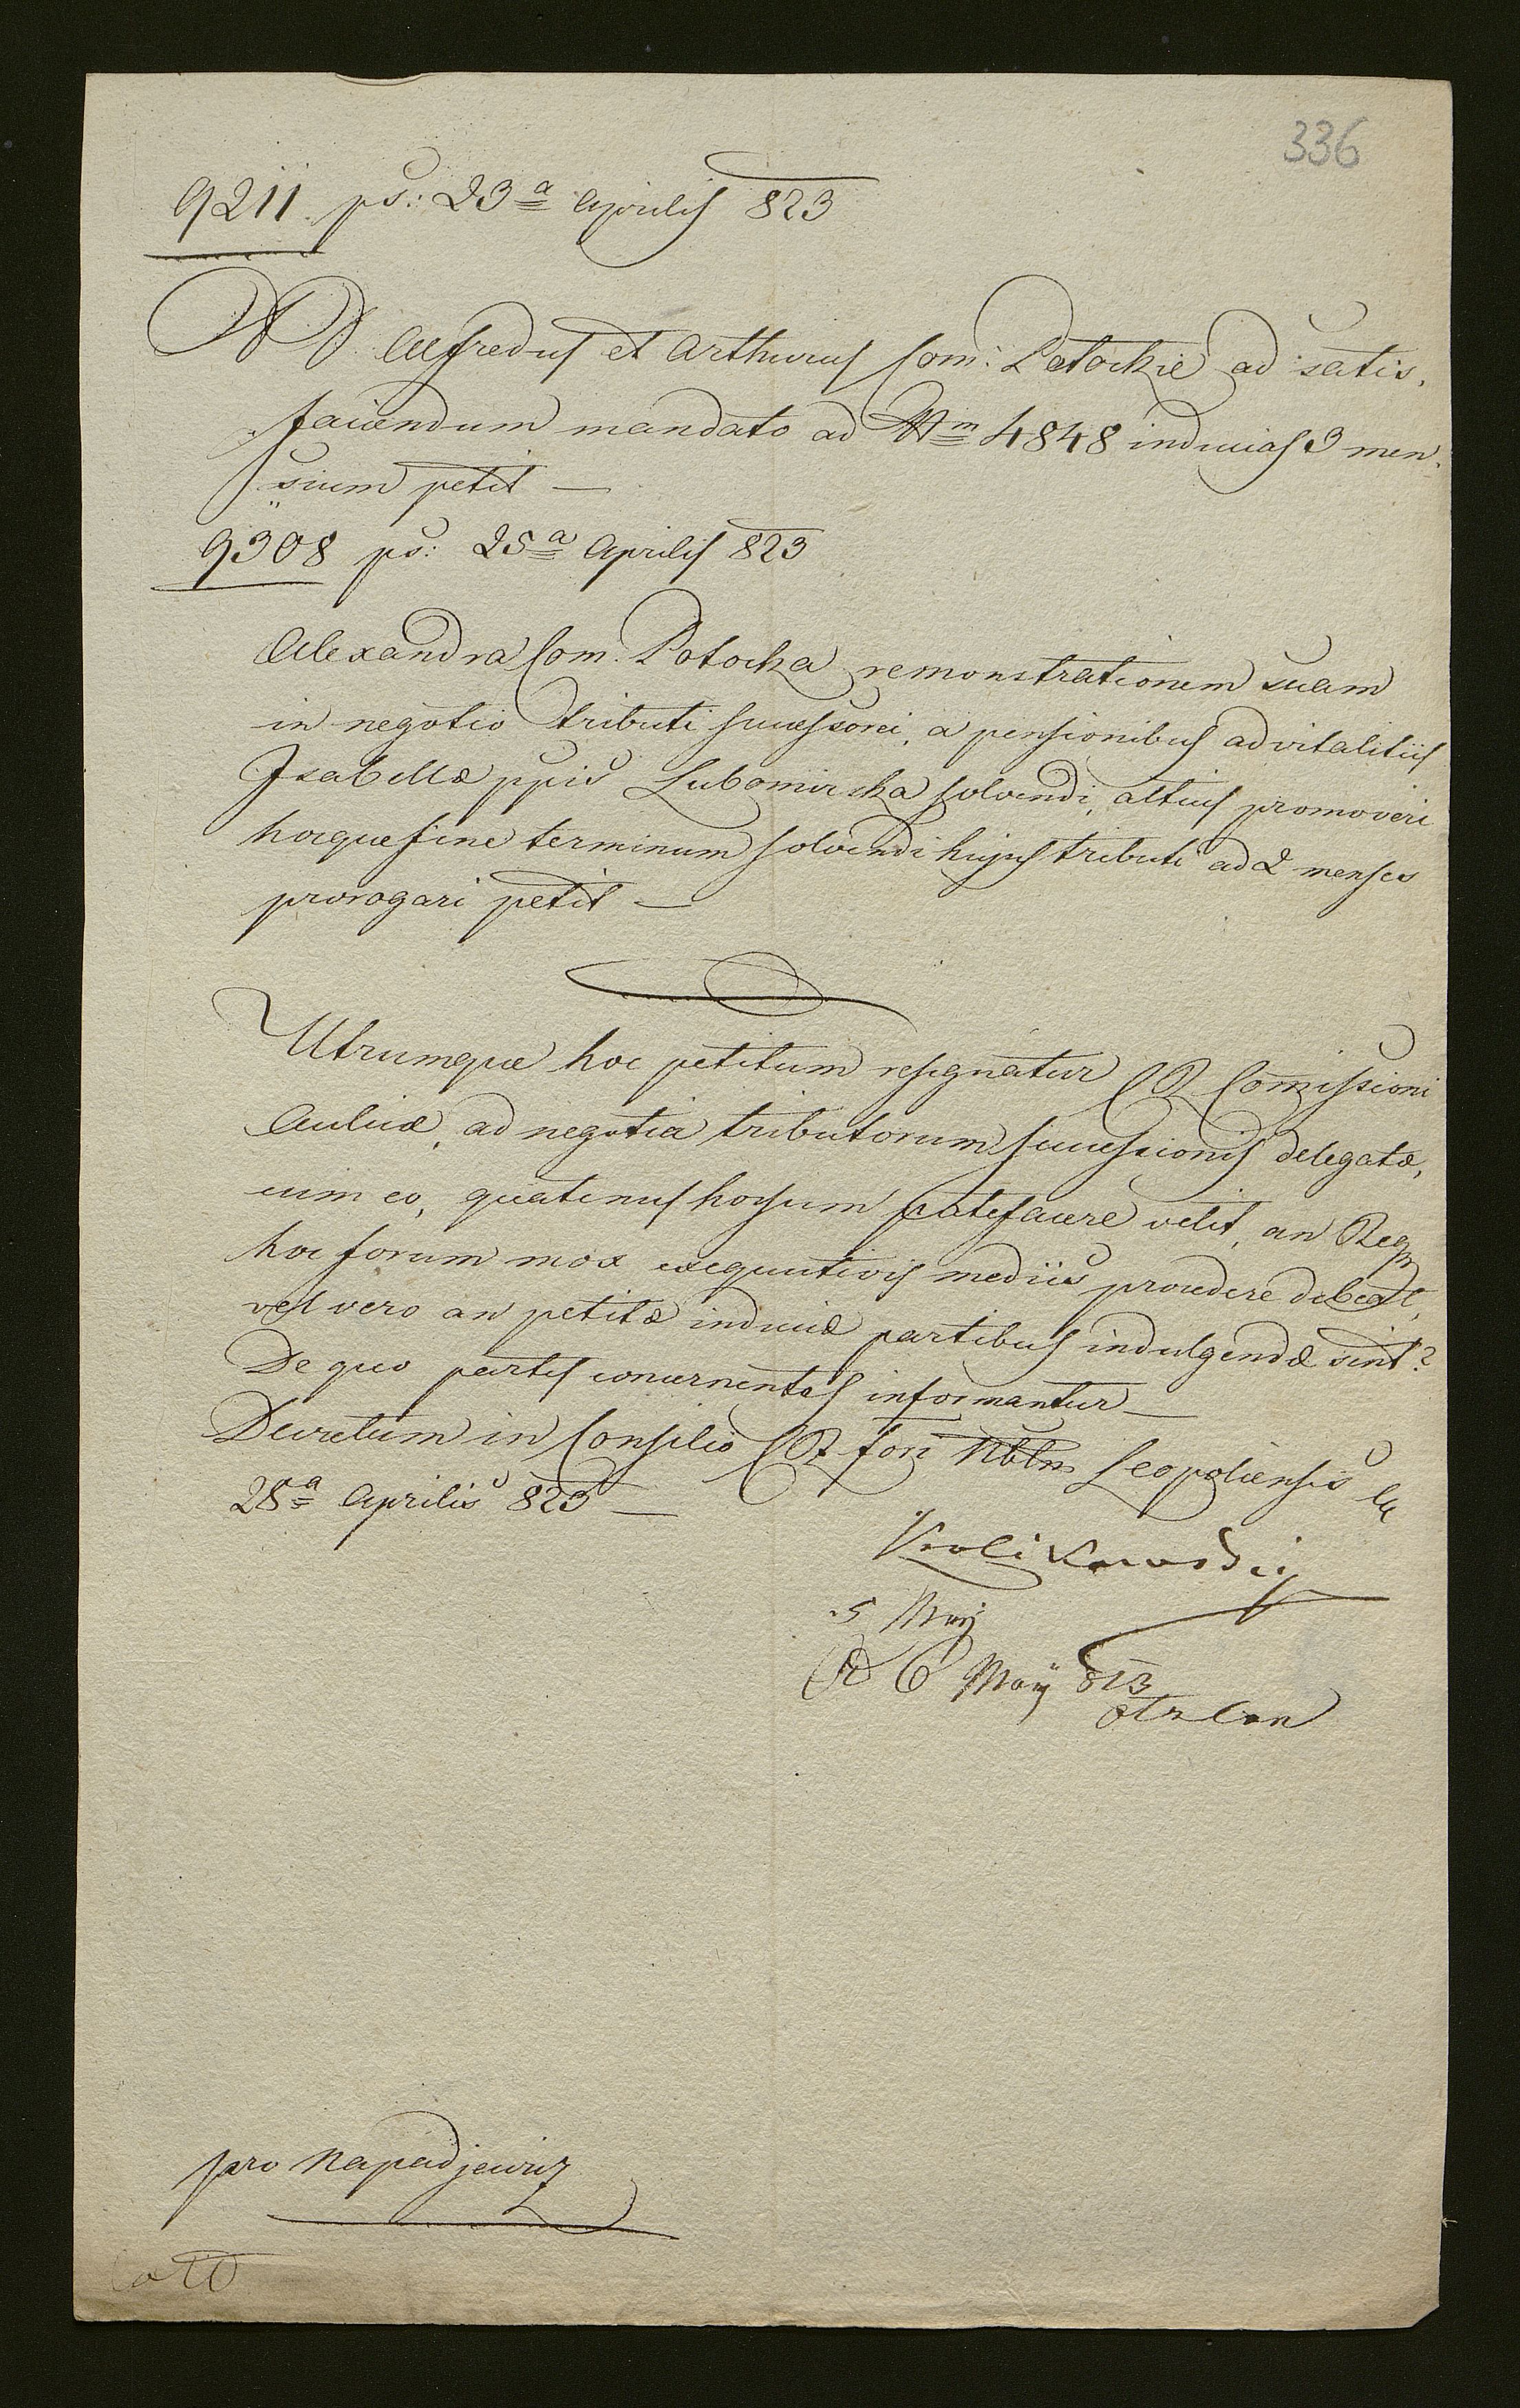 336
9211 ps: 23ª Aprilis 823
Alfredus et Arthurus Com: Potockie ad satis-
faciendum mandato ad Nrm 4848 inducias 3 men-
sium petit —
9308 ps: 25ª Aprilis 823
Alexandra Com. Potocka remonstrationem suam
in negotio tributi successorei, a pensionibus advitalitiis
Isabellæ ppis Lubomirska solvendi, altius promoveri
hocque fine terminum solvendi hujus tributi ad 2 menses
prorogari petit —
Utrumque hoc petitum resignatur CR Comissioni
Aulicæ, ad negotia tributorum successionis delegatæ,
cum eo, quatenus horsum patefacere velit, an Reg
hoc forum mox exequutivis mediis procedere debeat,
vel vero an petitæ induciæ partibus indulgendæ sint?
De quo partes concernentes informantur —
Decretum in Consilio CR fori Nblm Leopoliensis
28ª Aprilis 823 —
Krolikowski
5 Maij
6 Maij 823
pro Napadjewicz